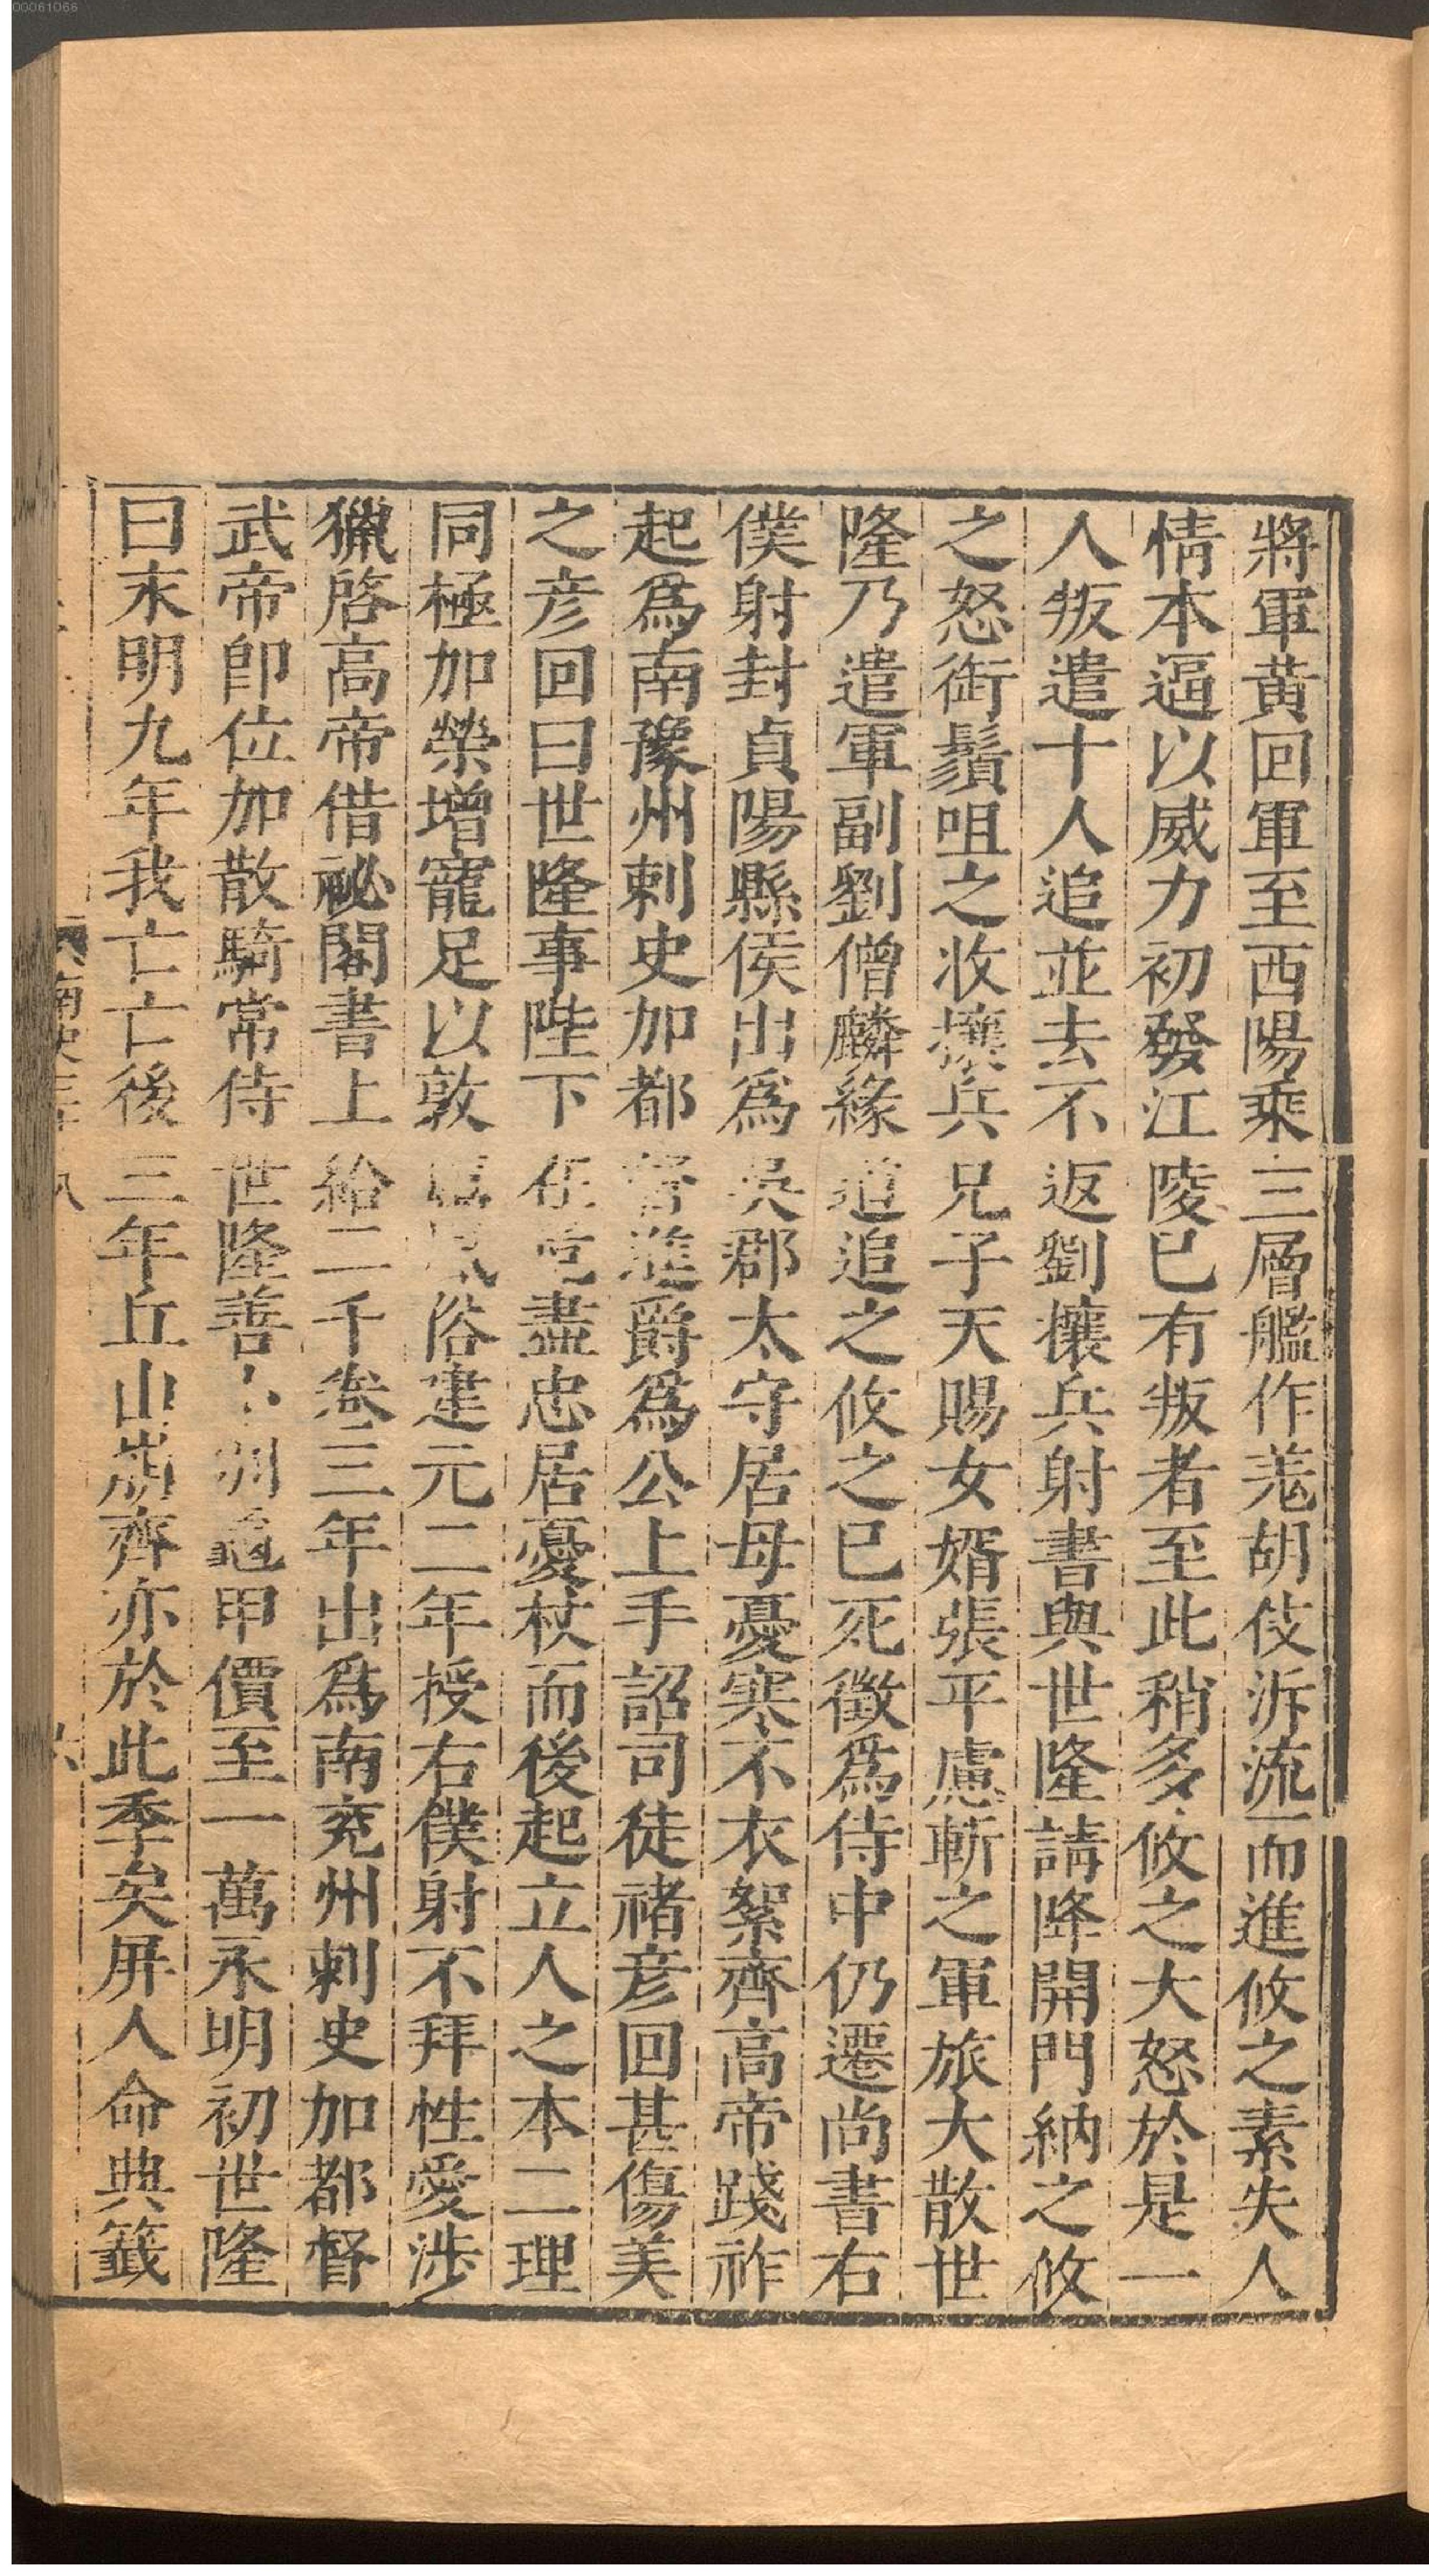 將軍黃回軍至西陽乘三層艦作羌胡伎泝流而進攸之素失人
情本逼以威力初發江陵已有叛者至此稍多攸之大怒於是一
人叛遣十人追並去不返劉攘兵射書與世隆請降開門納之攸
之怒銜鬚咀之收攘兵兄子天賜女婿張平慮斬之軍旅大散世
隆乃遣軍副劉僧麟緣道追之攸之已死徵爲侍中仍遷尚書右
僕射封貞陽縣侯出爲吳郡太守居母憂寒不衣絮齊高帝踐祚
起爲南豫州刺史加都督進爵爲公上手詔司徒褚彦回甚傷美
之彦回曰世隆事陛下在危盡忠居憂杖而後起立人之本二理
同極加榮增寵足以敦風俗建元二年授右僕射不拜性愛涉
獵啓高帝借祕閣書上給二千卷三年出爲南兖州刺史加都督
武帝卽位加散騎常侍世隆善龜甲價至一萬永明初世隆
曰末明九年我亡亡後三年丘山崩齊亦於此季矣屏人命典籤
南史三十八